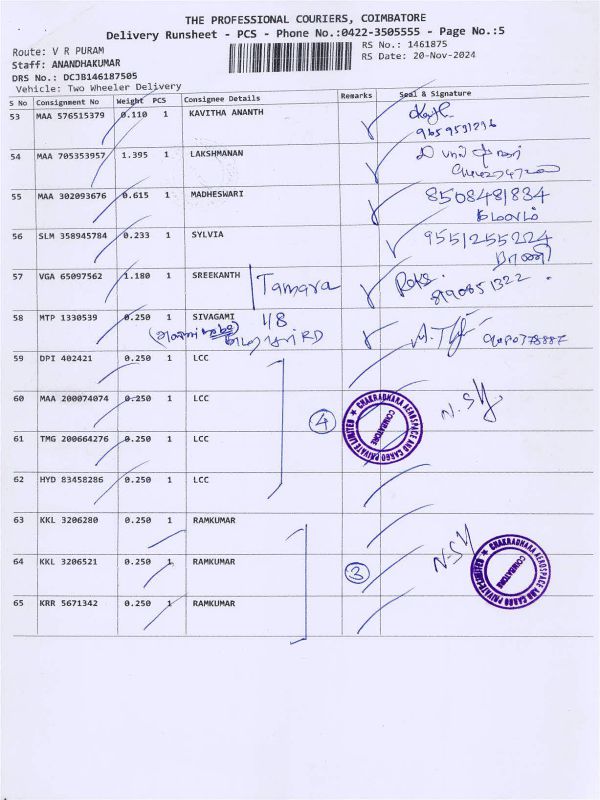 THE PROFESSIONAL COURIERS, COIMBATORE
Delivery Runsheet - PCS - Phone No.:0422-3505555 - Page No.:5
Route: V R PURAM
RS No.: 1461875
Staff: ANANDHAKUMAR
RS Date: 20-Nov-2024
DRS No.: DCJB146187505
Vehicle: Two Wheeler Delivery
S No Consignment No Weight PCS Consignee Details Remarks Seal & Signature
53 MAA 576515379 0.110 1 KAVITHA ANANTH
9659591296
54 MAA 705353957 1.395 1 LAKSHMANAN
55 MAA 302093676 0.615 1 MADHESWARI 8508481834
56 SLM 358945784 0.233 1 SYLVIA 9551255224
ராணி
57 VGA 65097562 1.180 1 SREEKANTH Tamara
8190851322
58 MTP 1330539 0.250 1 SIVAGAMI 1/8
RD
59 DPI 402421 0.250 1 LCC
60 MAA 200074074 0.250 1 LCC 4 N.Sy
CHAKRADHARA AEROSPACE AND CARGO PRIVATE LIMITED ★ COIMBATORE
61 TMG 200664276 0.250 1 LCC
62 HYD 83458286 0.250 1 LCC
63 KKL 3206280 0.250 1 RAMKUMAR
64 KKL 3206521 0.250 1 RAMKUMAR 3 N.Sy
CHAKRADHARA AEROSPACE AND CARGO PRIVATE LIMITED ★ COIMBATORE
65 KRR 5671342 0.250 1 RAMKUMAR